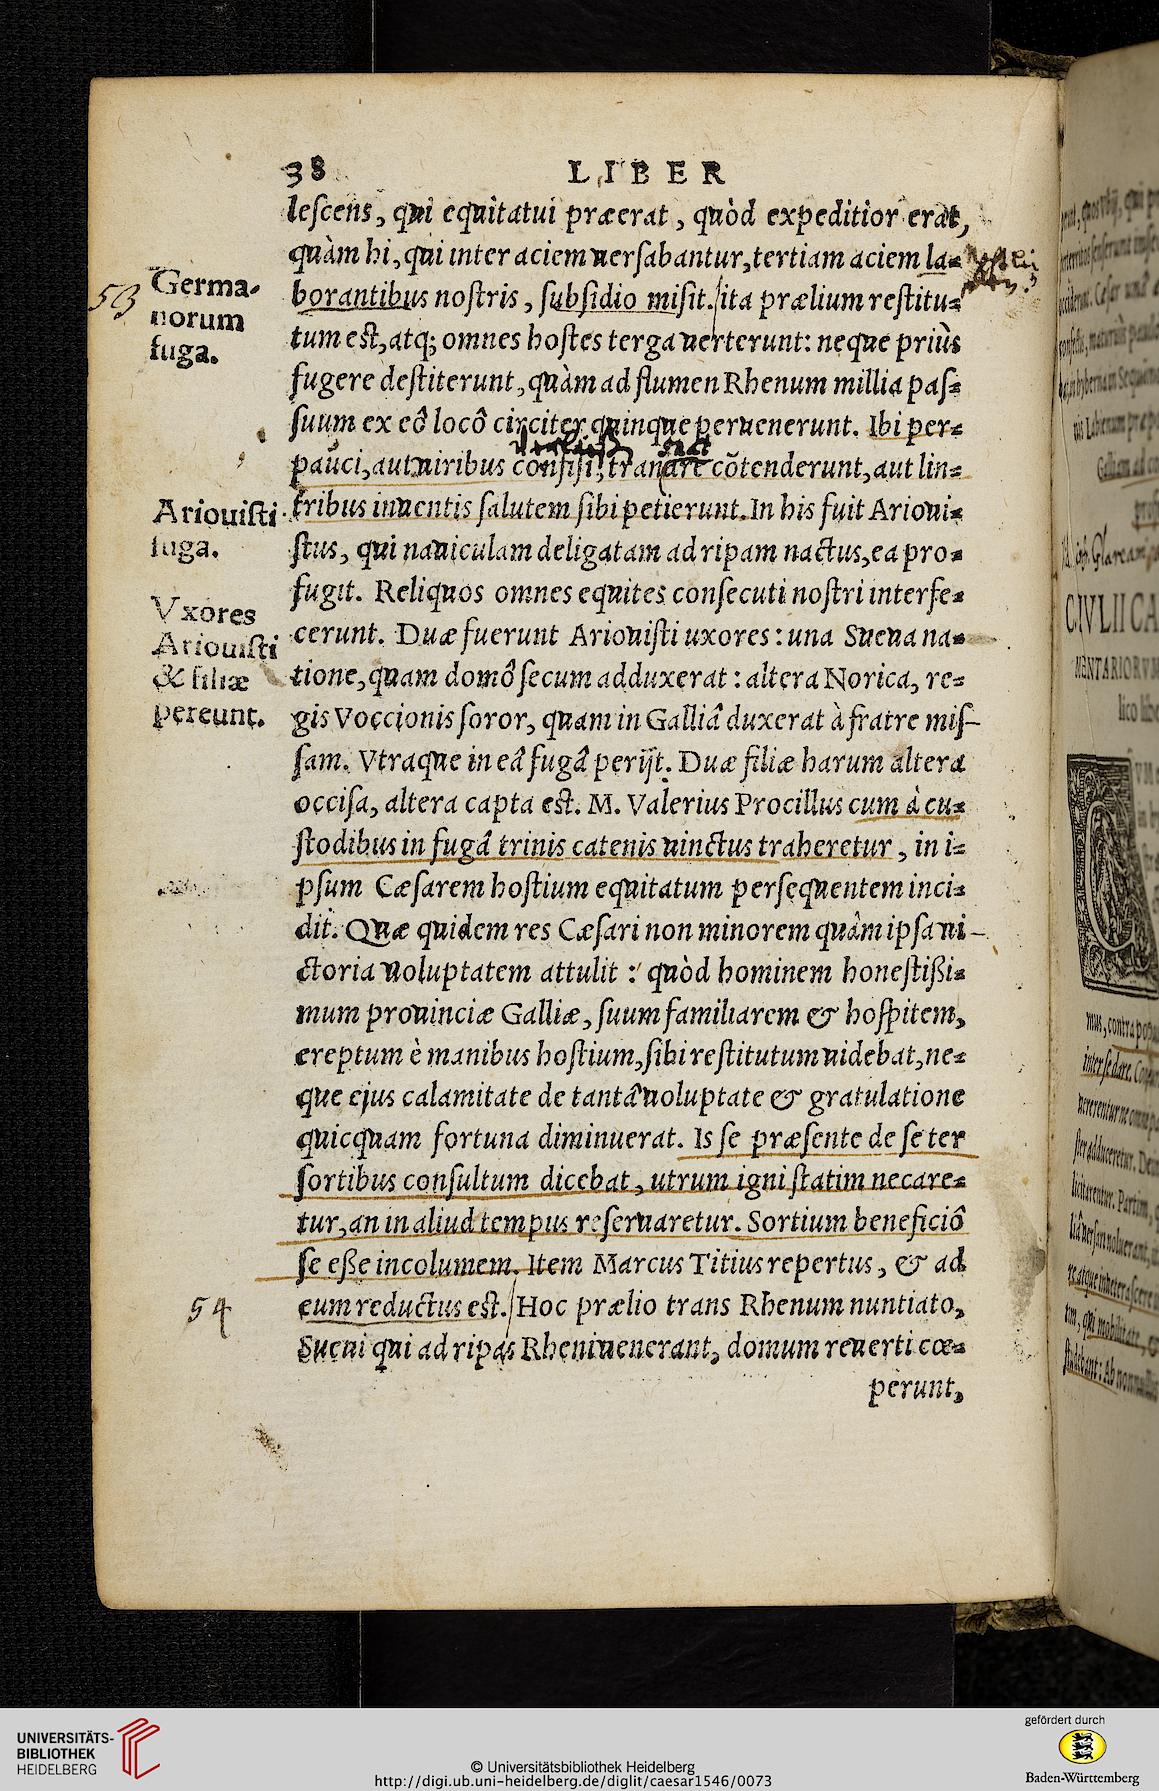 38 LIBER
leſcens, qui equitatui præerat, quòd expeditior erat,
quàm hi, qui inter aciem uerſabantur, tertiam aciem la-
borantibus noſtris, ſubſidio miſit. ita prælium reſtitu-
tum eſt, atq; omnes hoſtes terga uerterunt: neque priùs
fugere deſtiterunt, quàm ad flumen Rhenum millia paſ-
ſuum ex eô locô circiter quinque peruenerunt. Ibi per-
pauci, aut uiribus confiſi, tranare cõtenderunt, aut lin-
tribus inuentis ſalutem ſibi petierunt. In his fuit Arioui-
ſtus, qui nauiculam deligatam ad ripam nactus, ea pro-
fugit. Reliquos omnes equites conſecuti noſtri interfe-
cerunt. Duæ fuerunt Ariouiſti uxores: una Sueua na-
tione, quam domô ſecum adduxerat: altera Norica, re-
gis Voccionis ſoror, quam in Galliâ duxerat à fratre miſ-
ſam. Vtraque in eâ fugâ perijt. Duæ filiæ harum altera
occiſa, altera capta eſt. M. Valerius Procillus cum à cu-
ſtodibus in fugâ trinis catenis uinctus traheretur, in i-
pſum Cæſarem hoſtium equitatum perſequentem inci-
dit. Quæ quidem res Cæſari non minorem quàm ipſa ui-
ctoria uoluptatem attulit: quòd hominem honeſtißi-
mum prouinciæ Galliæ, ſuum familiarem & hoſpitem,
ereptum è manibus hoſtium, ſibi reſtitutum uidebat, ne-
que ejus calamitate de tantâ uoluptate & gratulatione
quicquam fortuna diminuerat. Is ſe præſente de ſe ter
ſortibus conſultum dicebat, utrum igni ſtatim necare-
tur, an in aliud tempus reſeruaretur. Sortium beneficiô
ſe eße incolumem. Item Marcus Titius repertus, & ad
eum reductus eſt. Hoc prælio trans Rhenum nuntiato,
Sueui qui ad ripas Rheni uenerant, domum reuerti cœ-
perunt,
53
Germa-
norum
fuga.
Ariouiſti
fuga.
Vxores
Ariouiſti
& filiæ
pereunt.
54
C. IVLII CA
MENTARIORVM
lico libe
UNIVERSITÄTS-
BIBLIOTHEK
HEIDELBERG
© Universitätsbibliothek Heidelberg
http://digi.ub.uni-heidelberg.de/diglit/caesar1546/0073
gefördert durch
Baden-Württemberg